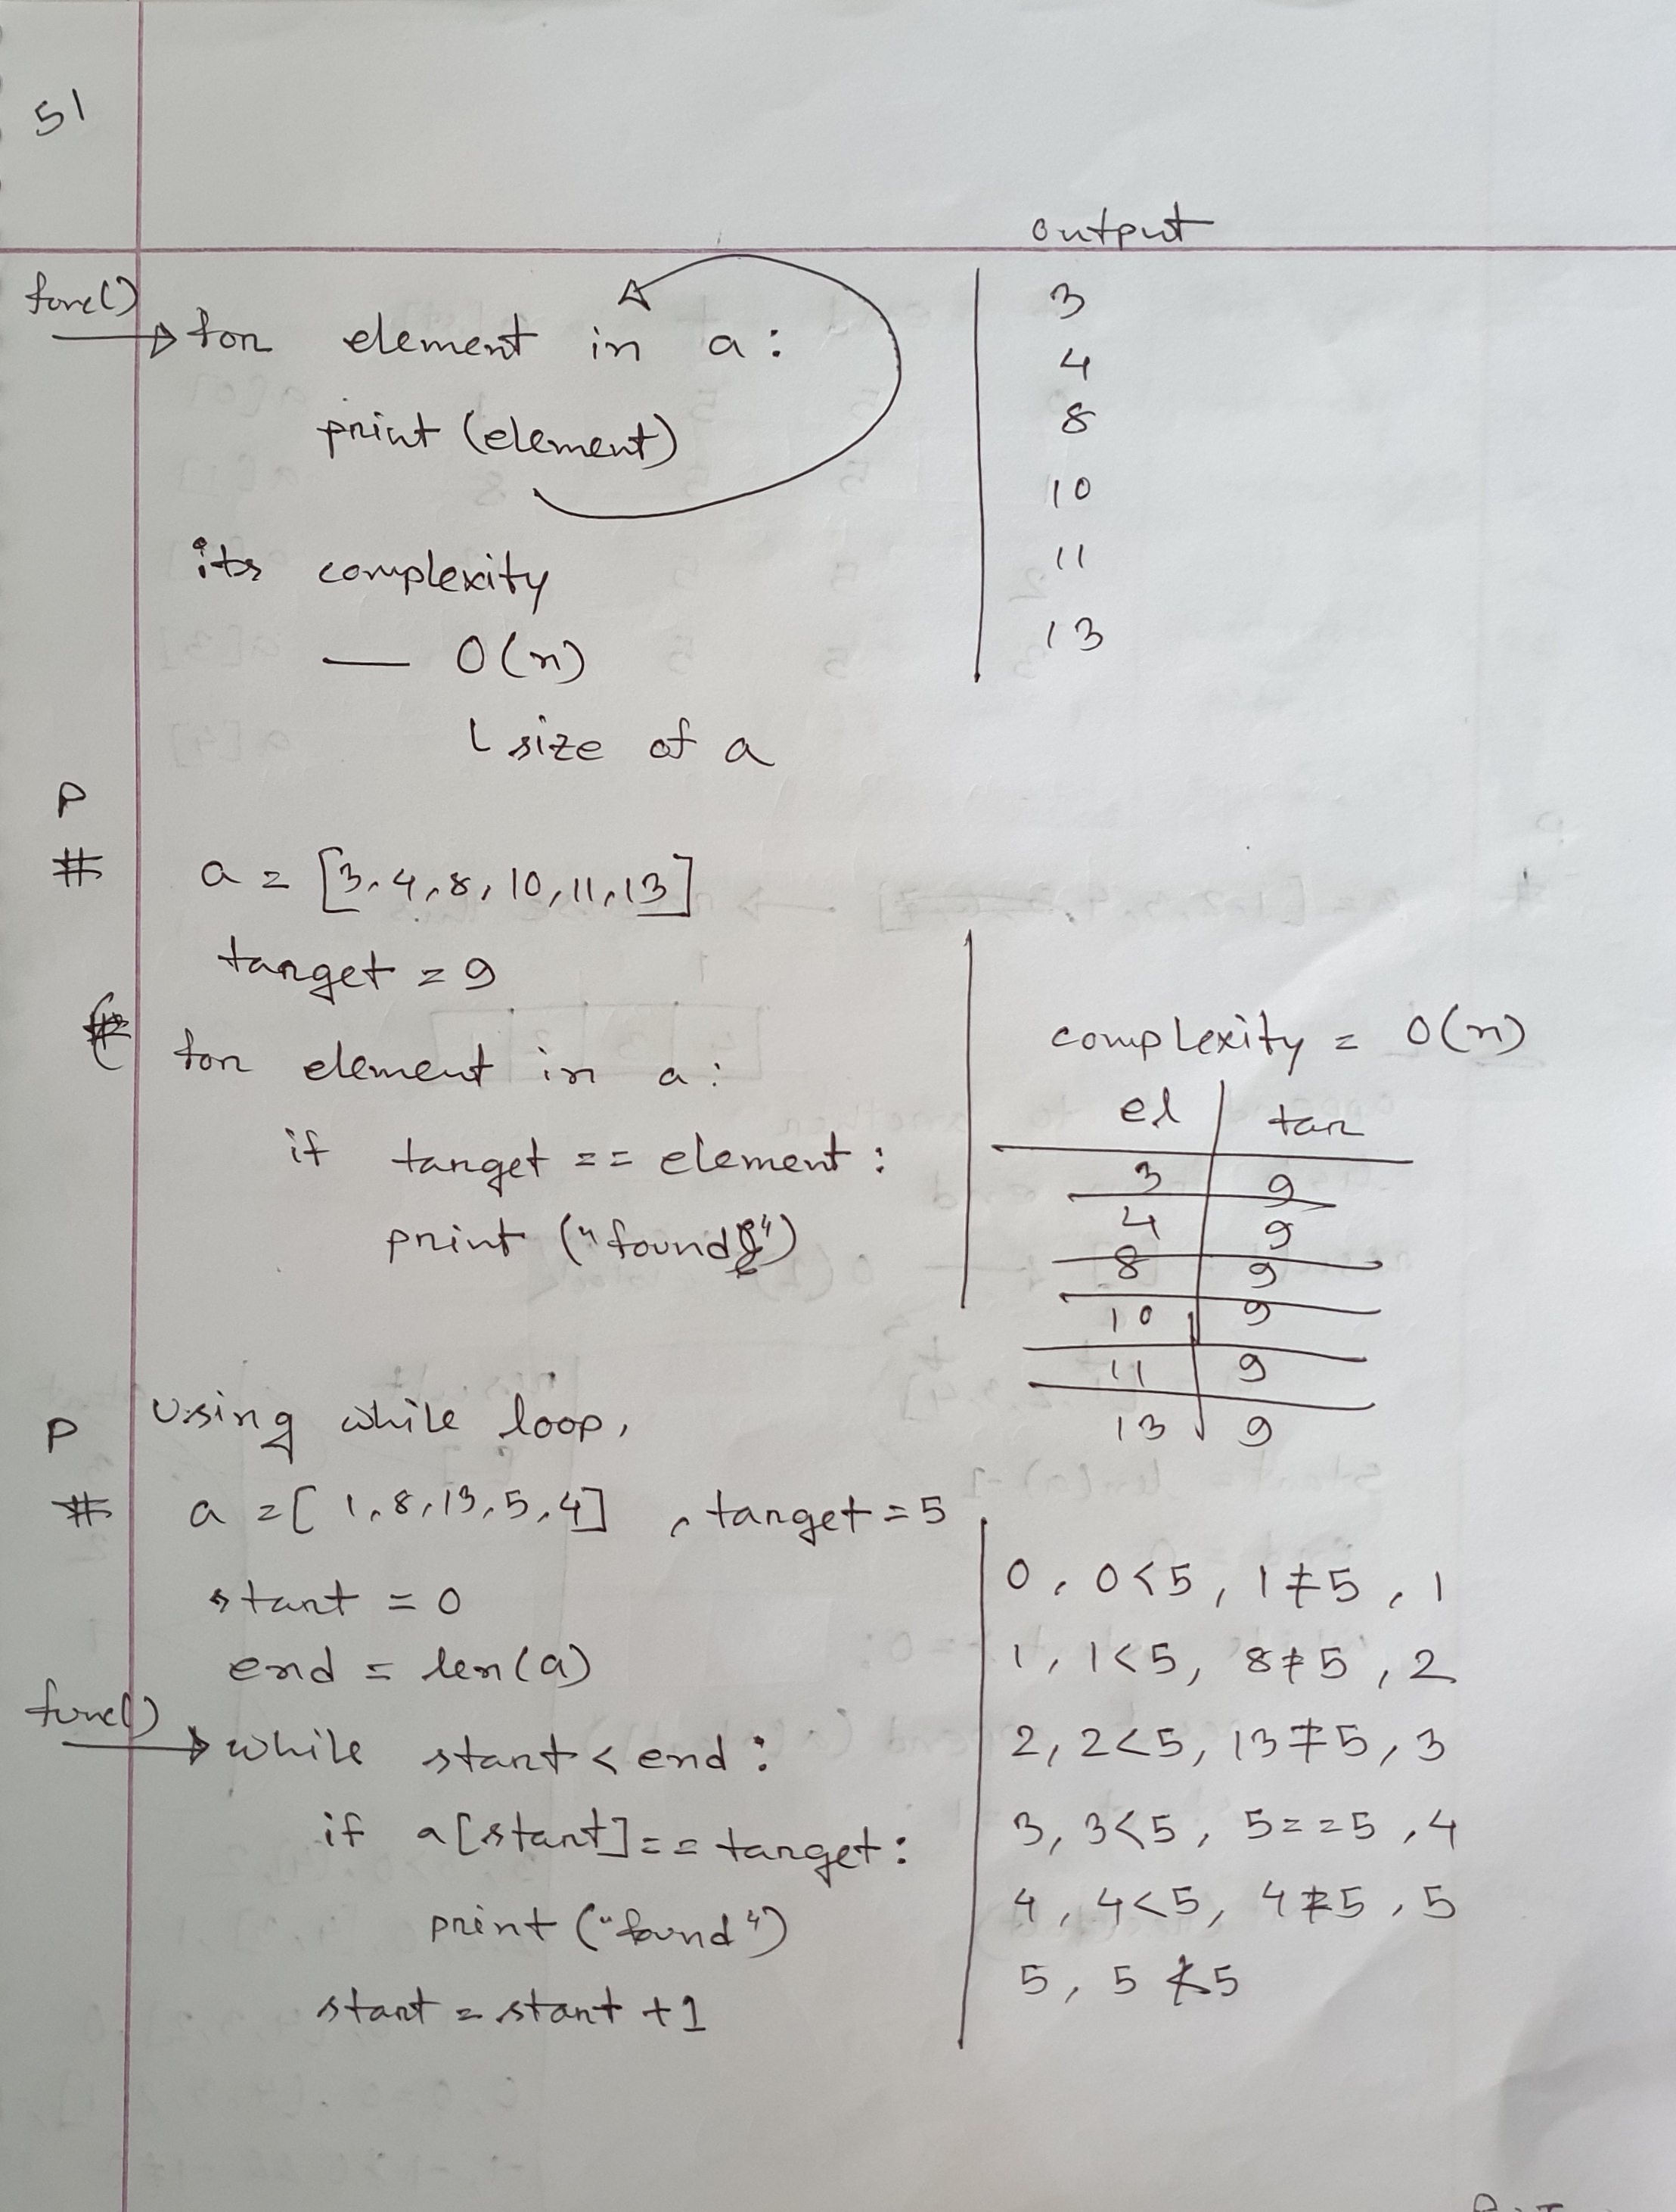 51
output
func()
for element in a:
print (element)
3
4
8
10
11
13
its complexity
— O(n)
size of a
P
# a = [3,4,8,10,11,13]
target = 9
for element in a:
if target == element:
print ("found")
complexity = O(n)
el | tar
3 | 9
4 | 9
8 | 9
10 | 9
11 | 9
13 | 9
P Using while loop,
# a = [1,8,13,5,4] , target = 5
start = 0
end = len(a)
func()
while start < end :
if a[start] == target:
print ("found")
start = start + 1
0, 0<5, 1≠5, 1
1, 1<5, 8≠5, 2
2, 2<5, 13≠5, 3
3, 3<5, 5==5, 4
4, 4<5, 4≠5, 5
5, 5≮5